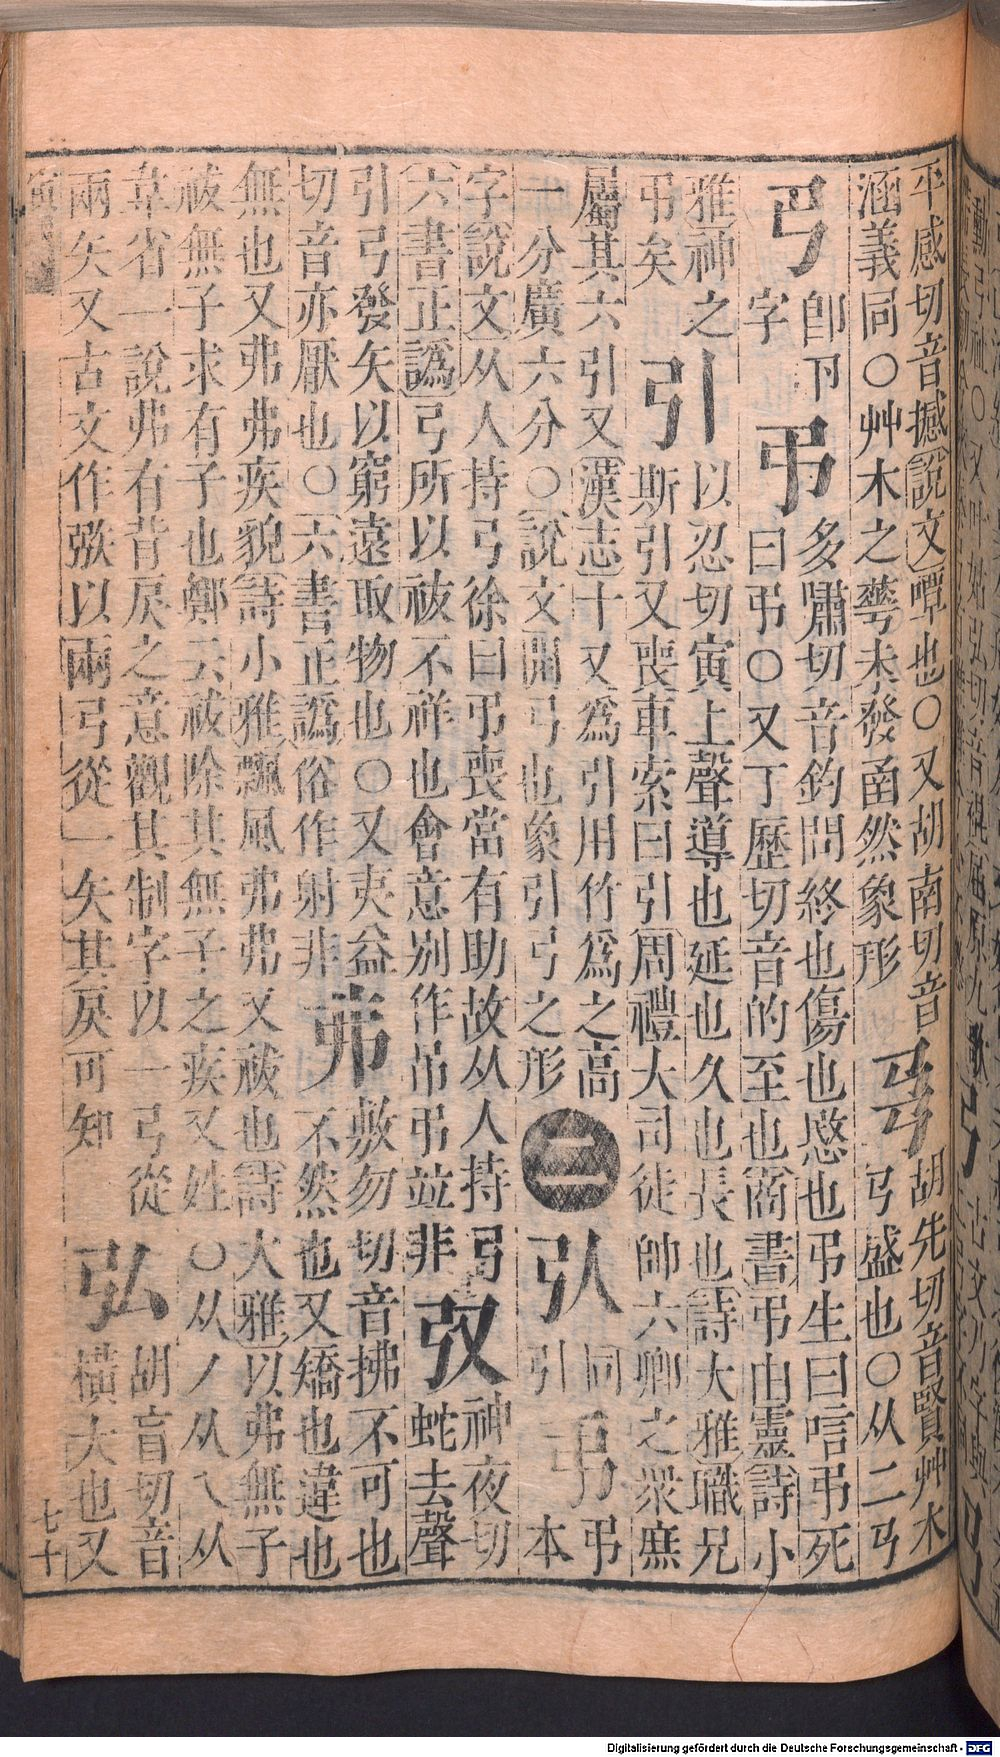 乎感切音撼說文嘾也○又胡南切音
涵義同○艸木之蕚未發圅然象形
𢎘胡先切音賢艸木
𢎗盛也○从二𢎗
𢎨卽下
字
弔多嘯切音釣問終也傷也愍也弔生曰唁弔死
曰弔○又丁歷切音的至也商書弔由靈詩小
雅神之
弔矣
引以忍切寅上聲導也延也久也長也詩大雅職兄
斯引又喪車索曰引周禮大司徒帥六鄕之衆庶
屬其六引又漢志十丈爲引用竹爲之高
一分廣六分○說文開弓也象引弓之形
二
弞同
引
弔本
字說文从人持弓徐曰弔喪當有助故从人持弓
六書正譌弓所以祓不祥也會意別作吊弔並非
𢎱神夜切
蛇去聲
引弓發矢以窮遠取物也○又夷益
切音亦厭也○六書正譌俗作射非
弗敷勿切音拂不可也
不然也又矯也違也
無也又弗弗疾貌詩小雅飄風弗弗又祓也詩大雅以弗無子
祓無子求有子也鄭云祓除其無子之疾又姓○从丿从乀从
韋省一說弗有背戾之意觀其制字以一弓從
兩矢又古文作𢐀以兩弓從一矢其戾可知
弘胡盲切音
橫大也又
七十
Digitalisierung gefördert durch die Deutsche Forschungsgemeinschaft - DFG